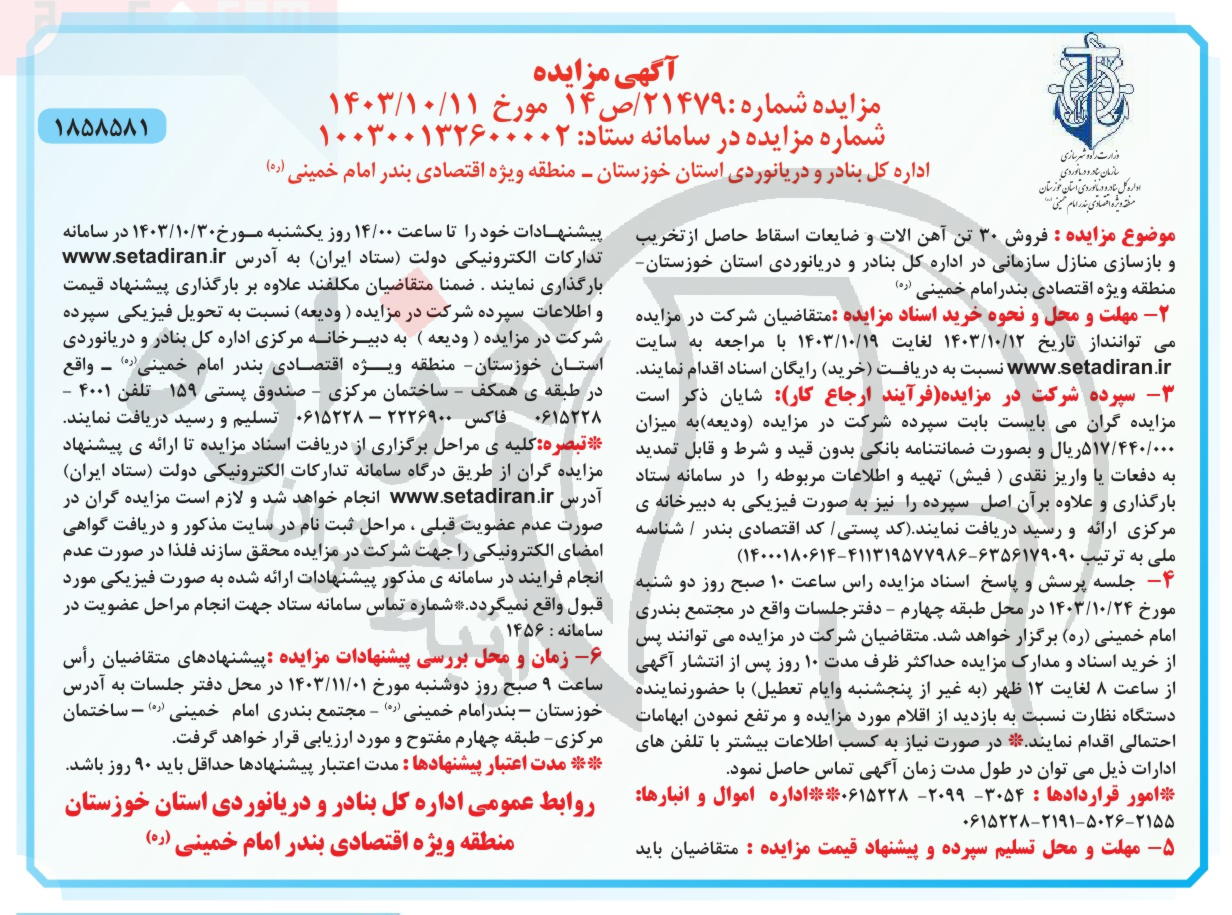 آگهی مزایده
مزایده شماره :۲۱۴۷۹/ص۱۴ مورخ ۱۴۰۳/۱۰/۱۱
شماره مزایده در سامانه ستاد: ۱۰۰۳۰۰۱۳۲۶۰۰۰۰۰۲
اداره کل بنادر و دریانوردی استان خوزستان – منطقه ویژه اقتصادی بندر امام خمینی (ره)
۱۸۵۸۵۸۱
وزارت راه و شهرسازی
سازمان بنادر و دریانوردی
اداره کل بنادر و دریانوردی استان خوزستان
منطقه ویژه اقتصادی بندر امام خمینی (ره)
موضوع مزایده : فروش ۳۰ تن آهن الات و ضایعات اسقاط حاصل ازتخریب
و بازسازی منازل سازمانی در اداره کل بنادر و دریانوردی استان خوزستان-
منطقه ویژه اقتصادی بندرامام خمینی (ره)
۲– مهلت و محل و نحوه خرید اسناد مزایده :متقاضیان شرکت در مزایده
می توانند‌از تاریخ ۱۴۰۳/۱۰/۱۲ لغایت ۱۴۰۳/۱۰/۱۹ با مراجعه به سایت
www.setadiran.ir نسبت به دریافت (خرید) رایگان اسناد اقدام نمایند.
۳– سپرده شرکت در مزایده(فرآیند ارجاع کار): شایان ذکر است
مزایده گران می بایست بابت سپرده شرکت در مزایده (ودیعه)به میزان
۵۱۷/۴۴۰/۰۰۰ریال و بصورت ضمانتنامه بانکی بدون قید و شرط و قابل تمدید
به دفعات یا واریز نقدی ( فیش) تهیه و اطلاعات مربوطه را در سامانه ستاد
بارگذاری و علاوه برآن اصل سپرده را نیز به صورت فیزیکی به دبیرخانه ی
مرکزی ارائه و رسید دریافت نمایند.(کد پستی/ کد اقتصادی بندر / شناسه
ملی به ترتیب ۶۳۵۶۱۷۹۰۹۰-۴۱۱۳۱۹۵۷۷۹۸۶-۱۴۰۰۰۱۸۰۶۱۴)
۴– جلسه پرسش و پاسخ اسناد مزایده راس ساعت ۱۰ صبح روز دو شنبه
مورخ ۱۴۰۳/۱۰/۲۴ در محل طبقه چهارم - دفترجلسات واقع در مجتمع بندری
امام خمینی (ره) برگزار خواهد شد. متقاضیان شرکت در مزایده می توانند پس
از خرید اسناد و مدارک مزایده حداکثر ظرف مدت ۱۰ روز پس از انتشار آگهی
از ساعت ۸ لغایت ۱۲ ظهر (به غیر از پنجشنبه وایام تعطیل) با حضورنماینده
دستگاه نظارت نسبت به بازدید از اقلام مورد مزایده و مرتفع نمودن ابهامات
احتمالی اقدام نمایند.* در صورت نیاز به کسب اطلاعات بیشتر با تلفن های
ادارات ذیل می توان در طول مدت زمان آگهی تماس حاصل نمود.
*امور قراردادها : ۳۰۵۴- ۲۰۹۹- ۰۶۱۵۲۲۸**اداره اموال و انبارها:
۲۱۵۵-۵۰۲۶-۲۱۹۱-۰۶۱۵۲۲۸
۵– مهلت و محل تسلیم سپرده و پیشنهاد قیمت مزایده : متقاضیان باید
پیشنهادات خود را تا ساعت ۱۴/۰۰ روز یکشنبه مورخ۱۴۰۳/۱۰/۳۰ در سامانه
تدارکات الکترونیکی دولت (ستاد ایران) به آدرس www.setadiran.ir
بارگذاری نمایند . ضمنا متقاضیان مکلفند علاوه بر بارگذاری پیشنهاد قیمت
و اطلاعات سپرده شرکت در مزایده ( ودیعه) نسبت به تحویل فیزیکی سپرده
شرکت در مزایده ( ودیعه ) به دبیرخانه مرکزی اداره کل بنادر و دریانوردی
استان خوزستان- منطقه ویژه اقتصادی بندر امام خمینی(ره) – واقع
در طبقه ی همکف - ساختمان مرکزی - صندوق پستی ۱۵۹- تلفن ۴۰۰۱ -
۰۶۱۵۲۲۸ فاکس ۲۲۲۶۹۰۰ – ۰۶۱۵۲۲۸ تسلیم و رسید دریافت نمایند.
*تبصره:کلیه ی مراحل برگزاری از دریافت اسناد مزایده تا ارائه ی پیشنهاد
مزایده گران از طریق درگاه سامانه تدارکات الکترونیکی دولت (ستاد ایران)
آدرس www.setadiran.ir انجام خواهد شد و لازم است مزایده گران در
صورت عدم عضویت قبلی ، مراحل ثبت نام در سایت مذکور و دریافت گواهی
امضای الکترونیکی را جهت شرکت در مزایده محقق سازند فلذا در صورت عدم
انجام فرایند در سامانه ی مذکور پیشنهادات ارائه شده به صورت فیزیکی مورد
قبول واقع نمیگردد.*شماره تماس سامانه ستاد جهت انجام مراحل عضویت در
سامانه : ۱۴۵۶
۶– زمان و محل بررسی پیشنهادات مزایده :پیشنهادهای متقاضیان رأس
ساعت ۹ صبح روز دوشنبه مورخ ۱۴۰۳/۱۱/۰۱ در محل دفتر جلسات به آدرس
خوزستان –بندرامام خمینی (ره) - مجتمع بندری امام خمینی (ره) – ساختمان
مرکزی- طبقه چهارم مفتوح و مورد ارزیابی قرار خواهد گرفت.
** مدت اعتبار پیشنهادها : مدت اعتبار پیشنهادها حداقل باید ۹۰ روز باشد.
روابط عمومی اداره کل بنادر و دریانوردی استان خوزستان
منطقه ویژه اقتصادی بندر امام خمینی (ره)